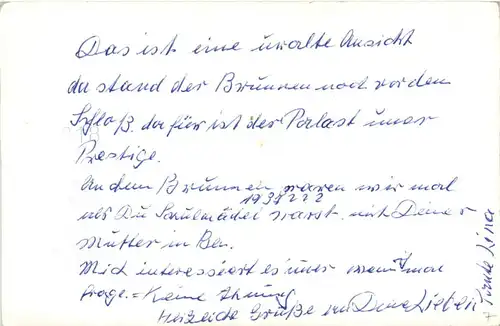 Das ist eine uralte Ansicht
da stand der Brunnen noch vor dem
Schloß. dafür ist der Palast unser
Prestige.
An dem Brunnen waren wir mal
1938???
als Du Schulmädel warst. mit Deiner
Mutter in Bln.
Mich interessiert es nur wenn ich mal
frage. = Keine Ahnung
Herzliche Grüße an Deine Lieben
Tante Lina